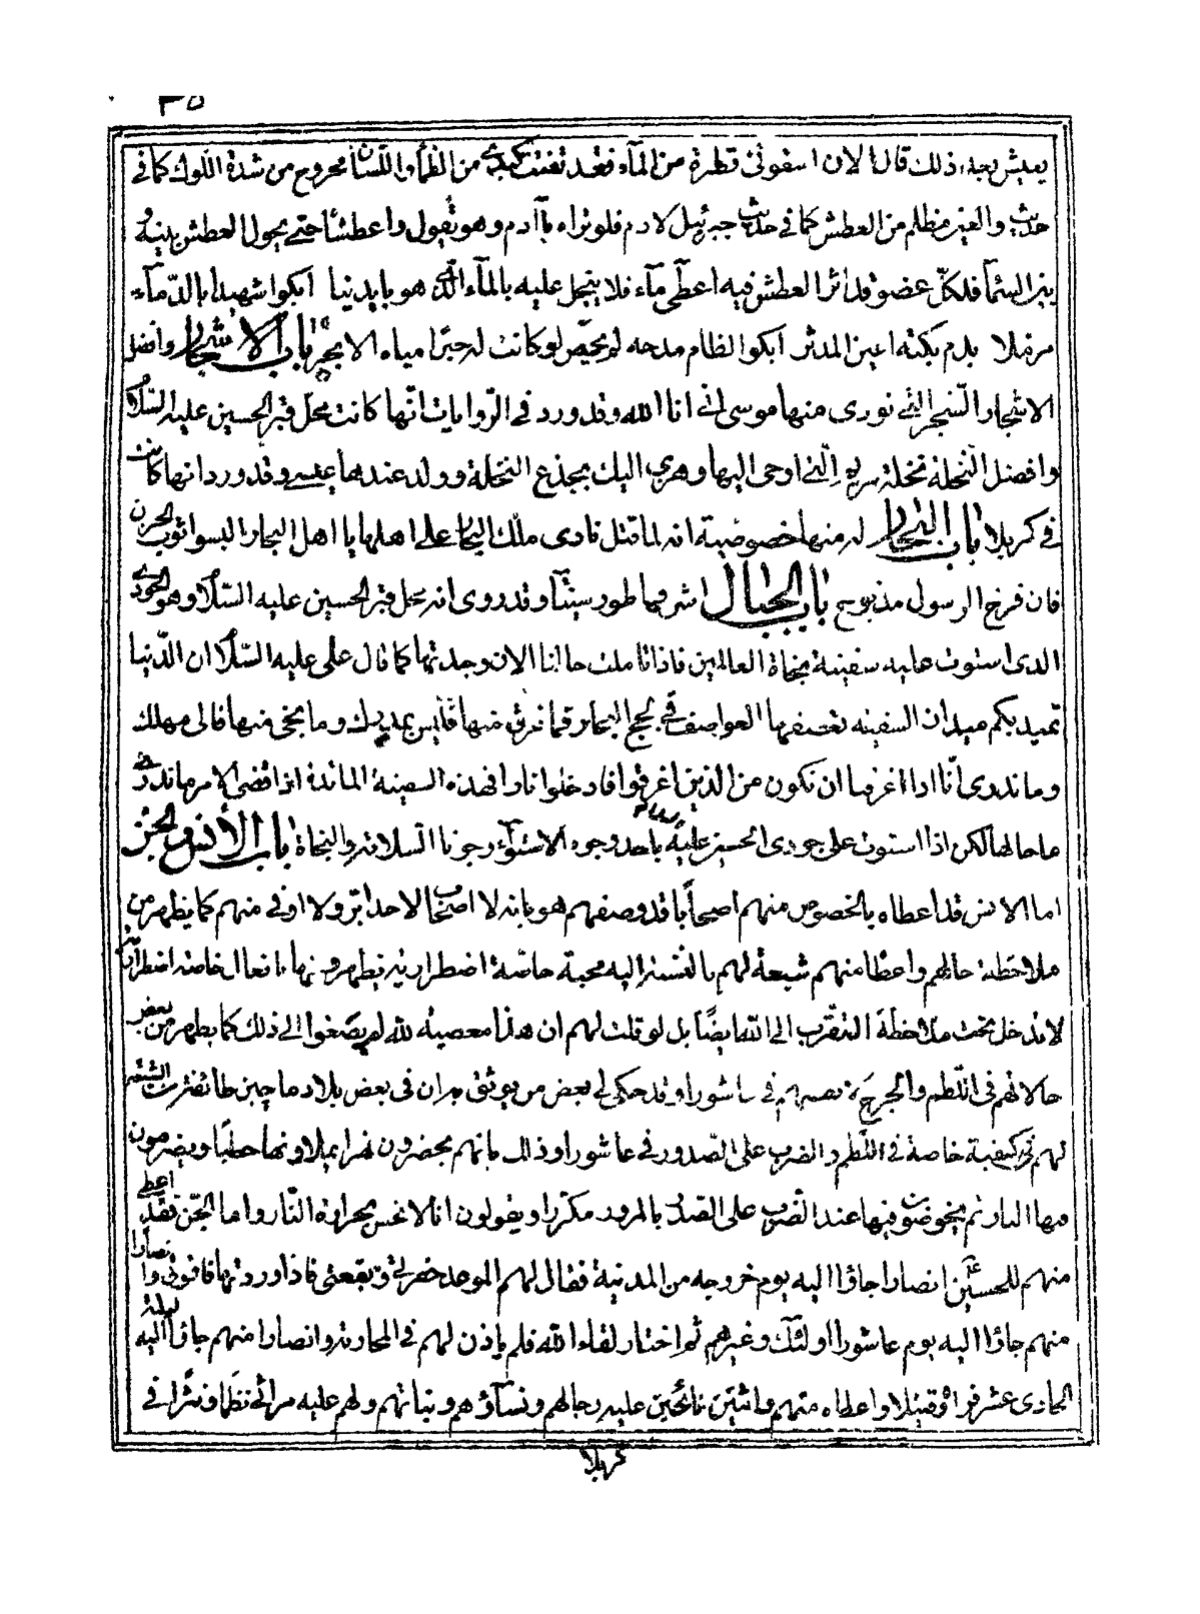 ٣٥
يعيش بعد ذلك قال الان اسقوني قطرة من المآء فقد تفتت كبدي من الظمأ واللسان مجروح من شدة اللوك كما في
حديث والعين مظلم من العطش كما في حديث جبرئيل لادم فلو تراه يا آدم وهو يقول واعطشاً حتى يحول العطش بينه و
بين السمآء فلكل عضو قد اثر العطش فيه اعطى مآء فلا يبخل عليه بالمآء الذي هو بايدينا ابكوا شهيدا بالدمآء
مرملا بدم بكته اعين المدثر ابكوا لظام مدحه لم يحص لو كانت له حبرًا مياه الابحر باب الاشجار وافضل
الاشجار الشجر التي نودى منها موسى اني انا الله وقد ورد في الروايات انها كانت محل قبر الحسين عليه السلام
وافضل النخلة نخلة مريم التي اوحى اليها وهزي اليك بجذع النخلة وولد عندها عيسى وقد ورد انها كانت
في كربلا باب البحار له منها خصوصية انه لما قتل نادى ملك البحار على اهلها يا اهل البحار البسوا ثوب الحزن
فان فرخ الرسول مذبوح باب الجبال اشرفها طور سينآء وقد روى انه محل قبر الحسين عليه السلام وهو الجودي
الذى استوت عليه سفينة نجاة العالمين فاذا تاملت حالنا الان وجدتها كما قال علي عليه السلام ان الدنيا
تميد بكم ميدان السفينه تعصفها العواصف في لجج البحار فما غرق منها فليس بمدرك وما نجى منها فالى مهلك
وما ندرى انا اذا اغرقنا ان نكون من الذين اغرقوا فادخلوا نارا فهذه السفينة المائدة اذا قضى الامر ما ندري
ما حالها لكن اذا استوت على جودى الحسين عليه السلام باحد وجوه الاستوآء رجونا السلامة والنجاة باب الأنس والجن
اما الانس قد اعطاه بالخصوص منهم اصحابا قد وصفهم هو بانه لا اصحاب لاحد ابر ولا اوفى منهم كما يظهر من
ملاحظة حالهم واعطا منهم شيعة لهم بالنسبة اليه محبة خاصة اضطرارية يظهرونها بافعال خاصة اضطرارية
لا تدخل تحت ملاحظة التقرب الى الله ايضًا بل لو قلت لهم ان هذا معصية لله لم يصغوا الى ذلك كما يظهر من بعض
حالاتهم في اللطم والجرح في عاشورا وقد حكى لي بعض من يوثق به ان في بعض بلاد ماچين طائفة من الشيعة
لهم كيفية خاصة في اللطم والضرب على الصدور في عاشورا وذلك بانهم يحضرون نهرا يملاونها حطبًا ويضرمون
فيها النار ثم يخوضون فيها عند الضرب على الصدر بالمرور مكررا ويقولون انا لا نحس بحرارة النار واما الجن فقد اعطى
منهم للحسين ع انصارا جاؤا اليه يوم خروجه من المدينة فقال لهم الموعد حفرتي وبقعتي فاذا وردتها فاتوني وانصارا
منهم جاؤا اليه يوم عاشورا اولئك وغيرهم ثم اختار لقاء الله فلم ياذن لهم في المحاربة وانصارا منهم جاؤا اليه ليلة
الحادى عشر فراوه قتيلا واعطاه منهم واثنين نائحين عليه رجالهم ونسآؤهم وبناتهم ولهم عليه مراثي نظما ونثرا في
كربلا